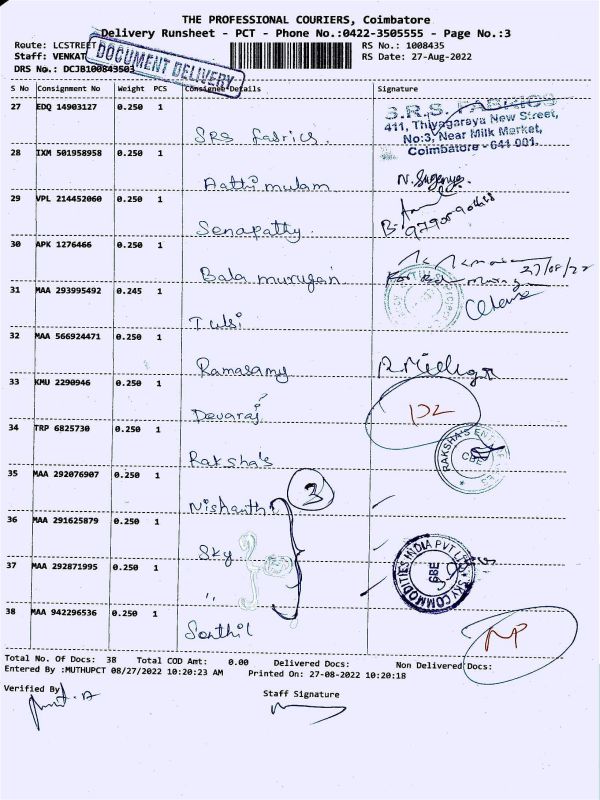 THE PROFESSIONAL COURIERS, Coimbatore
Delivery Runsheet - PCT - Phone No.:0422-3505555 - Page No.:3
Route: LCSTREET RS No.: 1008435
Staff: VENKAT RS Date: 27-Aug-2022
DOCUMENT DELIVERY
DRS No.: DCJB100843503
S No Consignment No Weight PCS Consignee Details Signature
27 EDQ 14903127 0.250 1 SRS fabrics
S.R.S. FABRICS
411, Thiyagaraya New Street,
No:3, Near Milk Market,
Coimbatore - 641 001.
28 IXM 501958958 0.250 1 Aathimulam N. Suganya
29 VPL 214452060 0.250 1 Senapatty
30 APK 1276466 0.250 1 Bala murugan 27/08/22
31 MAA 293995492 0.245 1 Tulsi
32 MAA 566924471 0.250 1 Ramasamy
33 KMU 2290946 0.250 1 Devaraj DL
34 TRP 6825730 0.250 1 Raksha's
RAKSHA'S CBE
35 MAA 292076907 0.250 1 Nishanth 3
36 MAA 291625879 0.250 1 Sky
SKY COMMODITIES INDIA PVT LTD CBE
37 MAA 292871995 0.250 1 "
38 MAA 942296536 0.250 1 Senthil NP
Total No. Of Docs: 38 Total COD Amt: 0.00 Delivered Docs: Non Delivered Docs:
Entered By :MUTHUPCT 08/27/2022 10:20:23 AM Printed On: 27-08-2022 10:20:18
Verified By Staff Signature